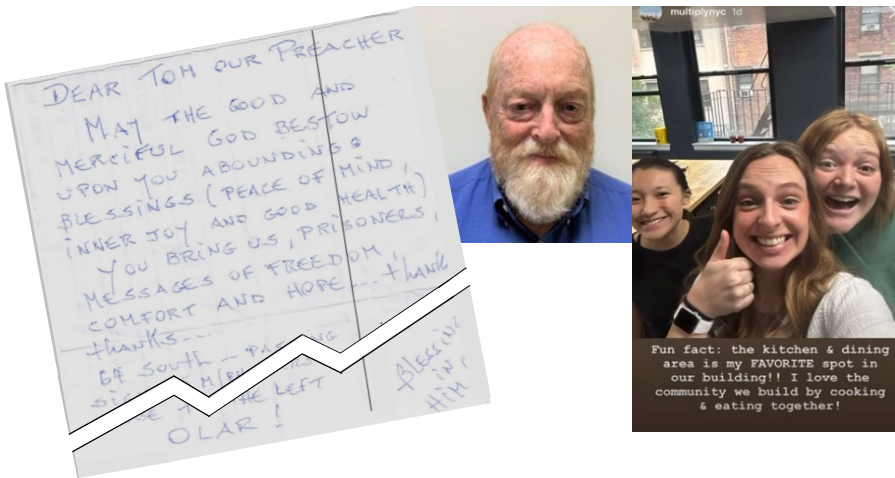 DEAR TOM OUR PREACHER
MAY THE GOOD AND
MERCIFUL GOD BESTOW
UPON YOU ABOUNDING
BLESSINGS (PEACE OF MIND,
INNER JOY AND GOOD HEALTH)
YOU BRING US, PRISONERS,
MESSAGES OF FREEDOM,
COMFORT AND HOPE... thank
thanks---
64 SOUTH --
THE LEFT
OLAR!
BLESSING
IN
HIM
multiplynyc 1d
Fun fact: the kitchen & dining
area is my FAVORITE spot in
our building!! I love the
community we build by cooking
& eating together!